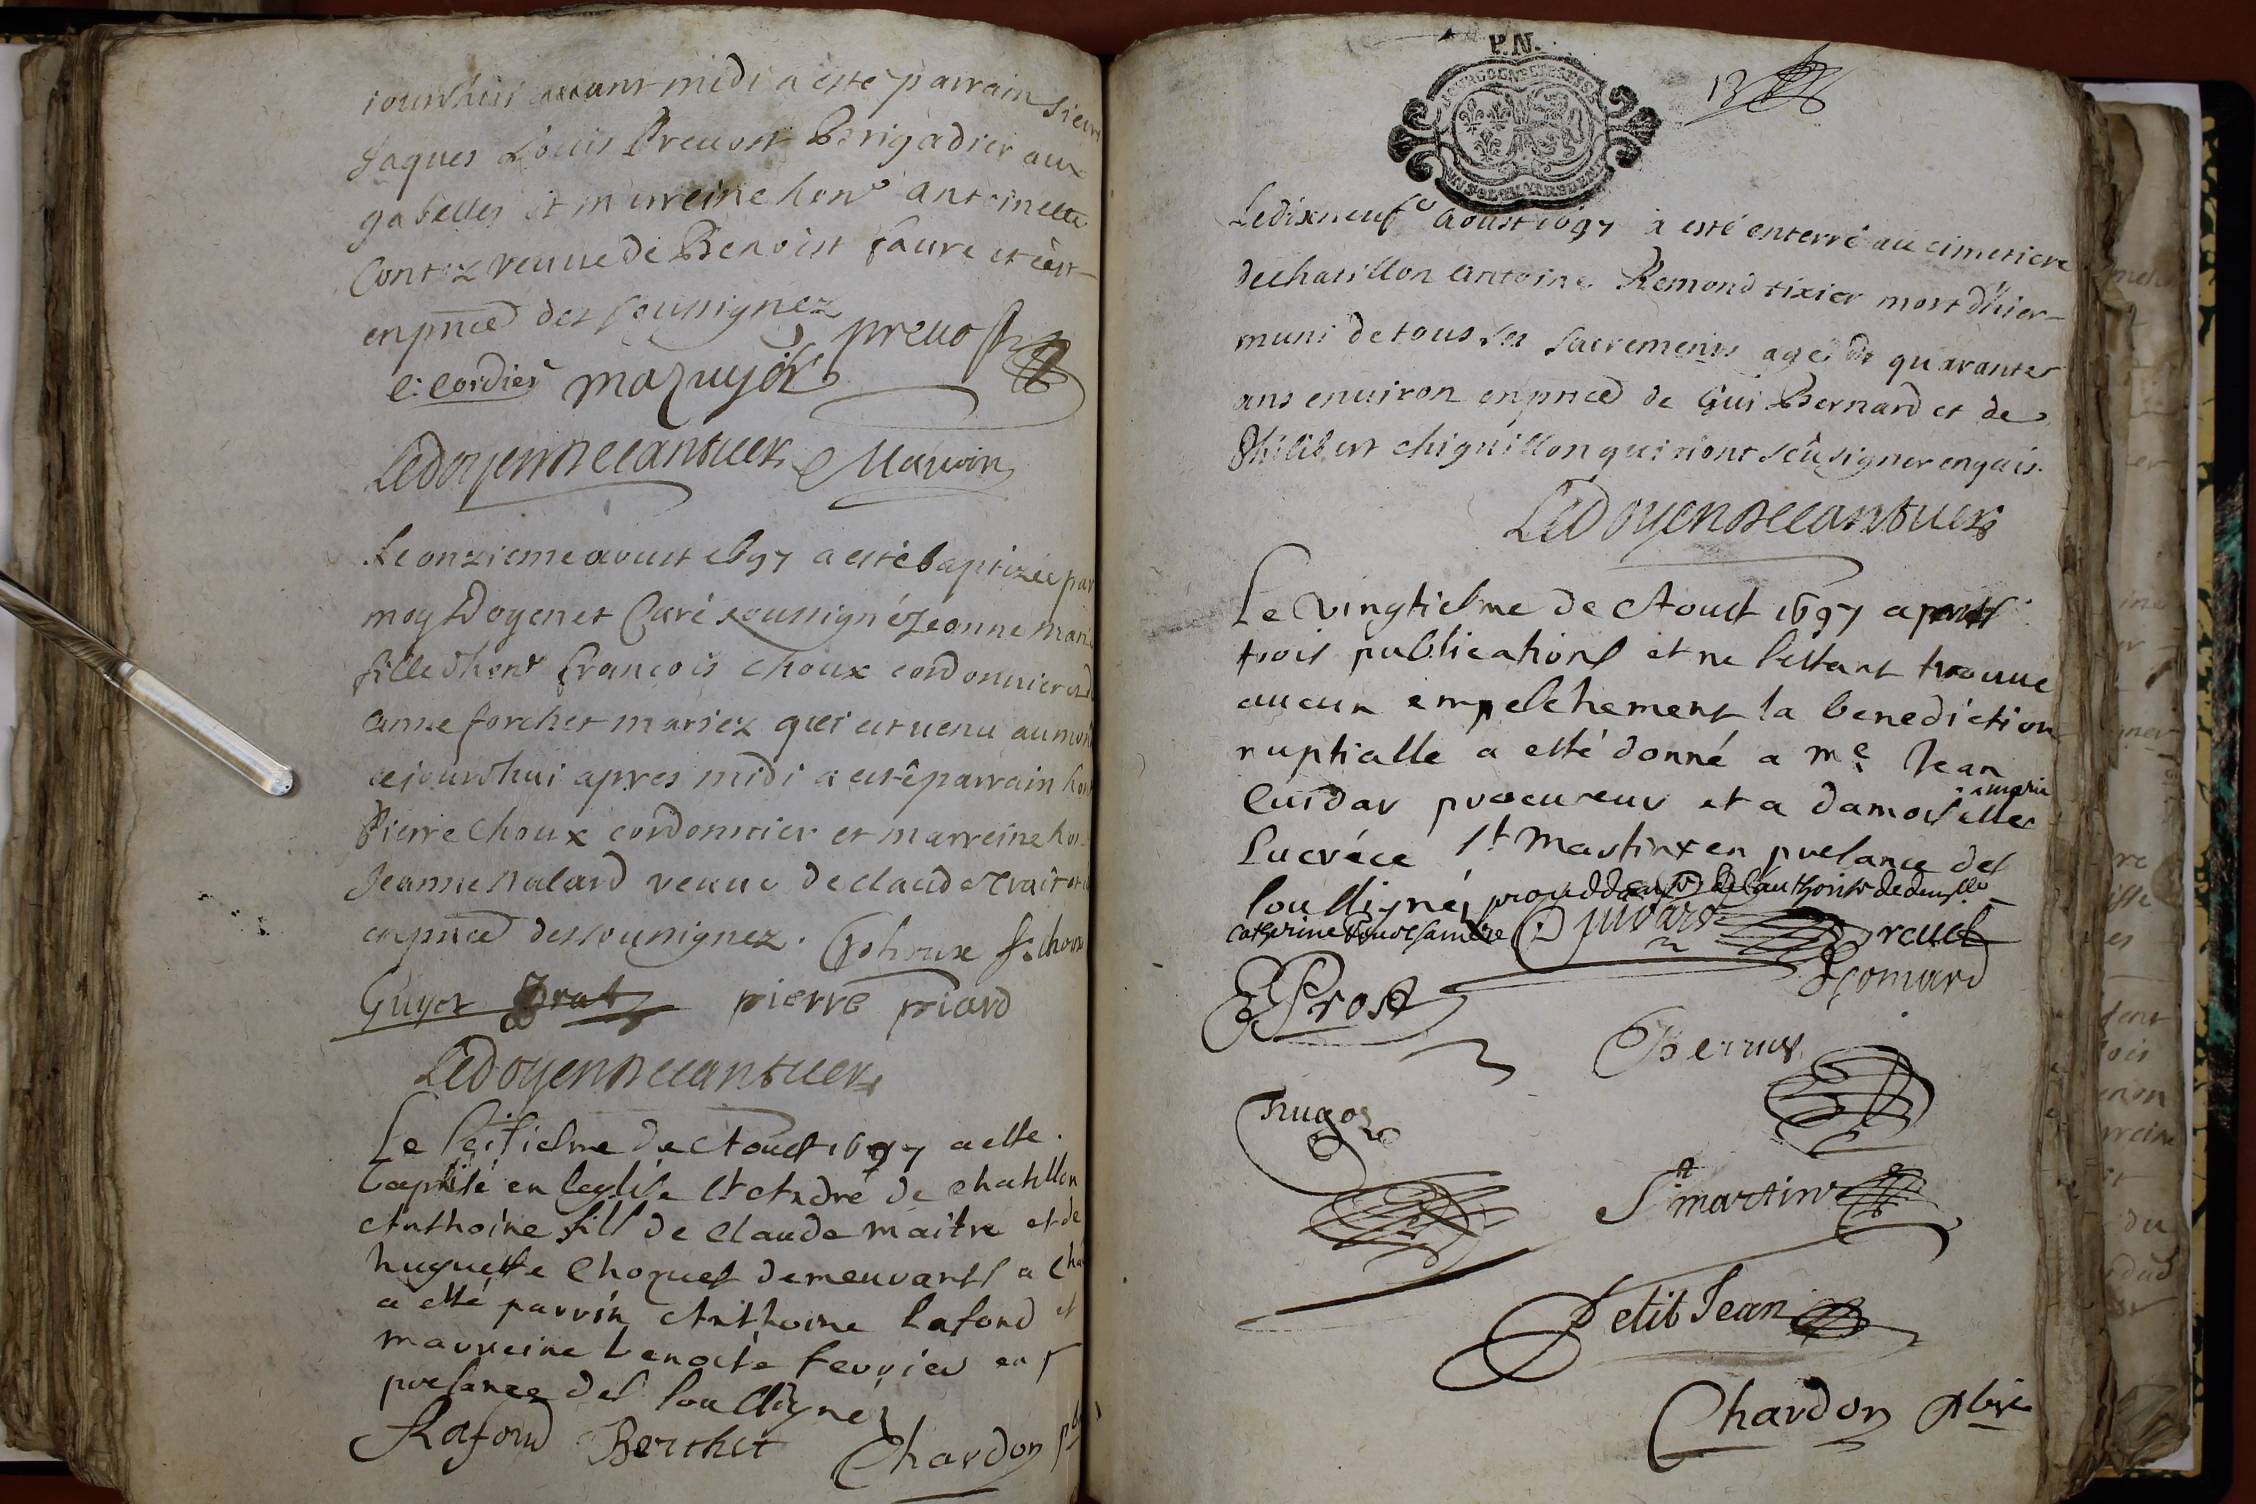 jourdhui avant midi a esté parrain sieur
Jaques Louis Prevost Brigadier aux
gabelles et marreine hon^e antoinette
Contez veuve de Benoist faure et c'est
en pñce des soussignez
prevost
C: Cordier mazuyer
Le doyen Decantuers Mauvin
Le onzieme aoust 1697 a esté baptizée par
moy Doyen et Curé soussigné Jeanne Marie
fille d'hon^e françois choux cordonnier et d
anne forchet mariez qui est venu au mond
cejourdhui apres midi a esté parrain hon
Pierre Choux cordonnier et marreine hon
Jeanne nalard veuve de claude
en pñce des soussignez. Choux f: choux
Guyot pierre piard
Le doyen Decantuers
Le seisiesme de Aoust 1697 a esté
baptisé en leglise s^t Andre de chatillon
Anthoine fils de Claude maitre et de
huguette Choquet demeurants a Cha
a esté parrin Anthoine lafond et
marreine benoite fevrier en
presance des soussignez
Lafond Berthet Chardon pb
P.N.
13
Le dixneuf^e aoust 1697 a esté enterré au cimetiere
de chatillon antoine Remond tixier mort d'hier
muni de tous ses sacrements agé de quarante
ans environ en pñce de Gui Bernard et de
Philibert chiguillon qui n'ont sçu signer enquis.
Le doyen Decantuers
Le vingtiesme de Aoust 1697 apres
trois publications et ne sestant trouvé
aucun empeschement la benediction
nuptialle a esté donné a m^e Jean
marie
Cuidar procureur et a damoiselle
Lucréce s^t Martin en presance des
soussignés de l'authorité de
catherine sa mere
Prost
hugo
S^t martin
Petit Jean
Chardon pbre